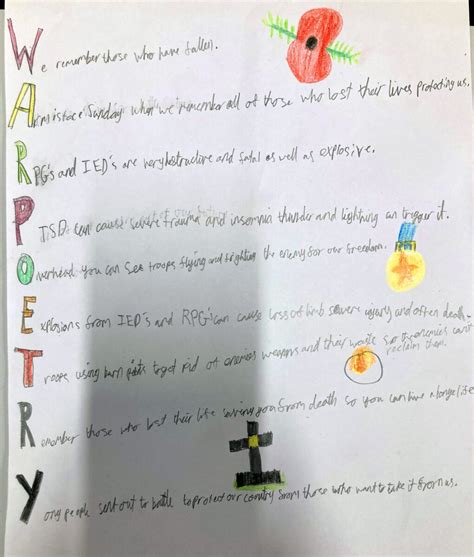 We remember those who have fallen.
Armistace Sunday when we remember all of those who lost their lives protecting us.
RPG's and IED's are very destructive and fatal as well as explosive.
PTSD can cause severe trauma and insomnia thunder and lightning can trigger it.
Overhead you can see troops flying and fighting the enemy for our freedom.
Explosions from IED's and RPG's can cause loss of limb severe injury and often death.
Troops using burn pits to get rid of enemies weapons and their waste so the enemies can't
reclaim them.
Remember those who lost their life saving you from death so you can have a longer life
Young people sent out to battle to protect our country from those who want to take it from us.